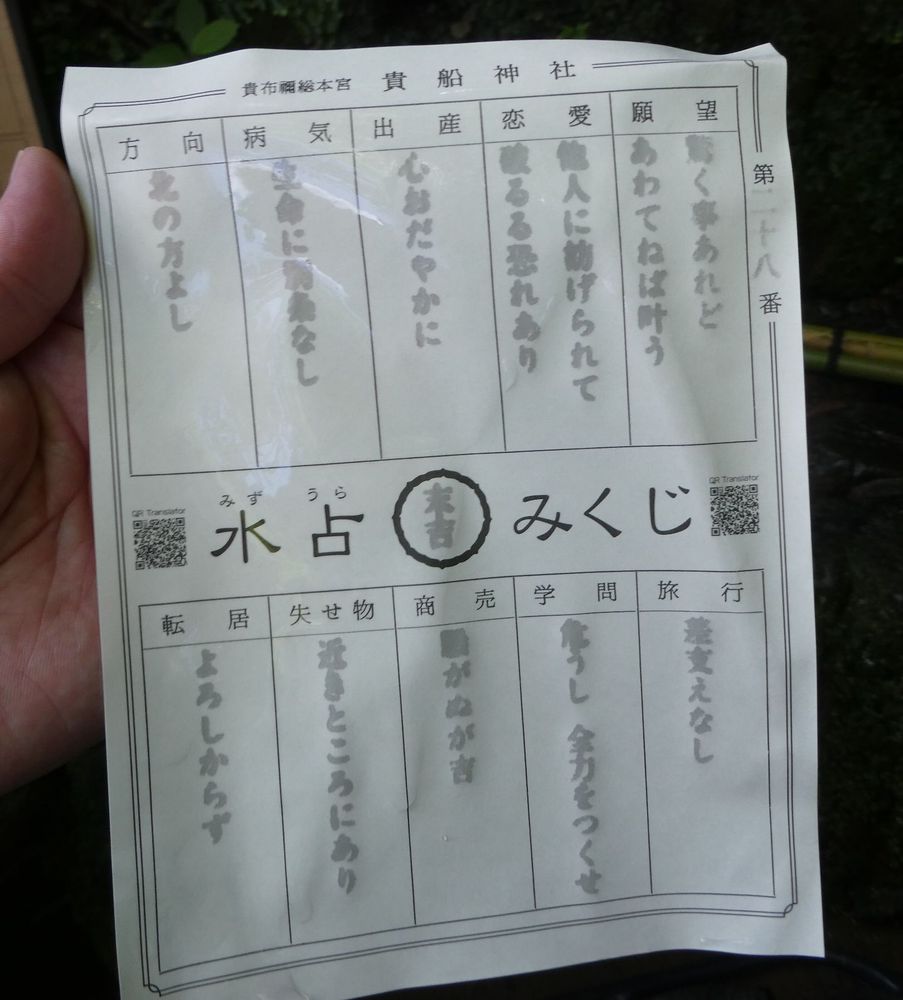 貴布禰総本宮 貴船神社
第二十八番
願望
驚く事あれど
あわてねば叶う
恋愛
他人に妨げられて
破るる恐れあり
出産
心おだやかに
病気
生命に別条なし
方向
北の方よし
QR Translator
みず うら
水占 末吉 みくじ
QR Translator
旅行
差支えなし
学問
危うし 全力をつくせ
商売
騒がぬが吉
失せ物
近きところにあり
転居
よろしからず